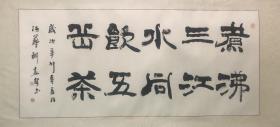 煮沸
三江
水同
飲五
岳茶
歲次辛卯